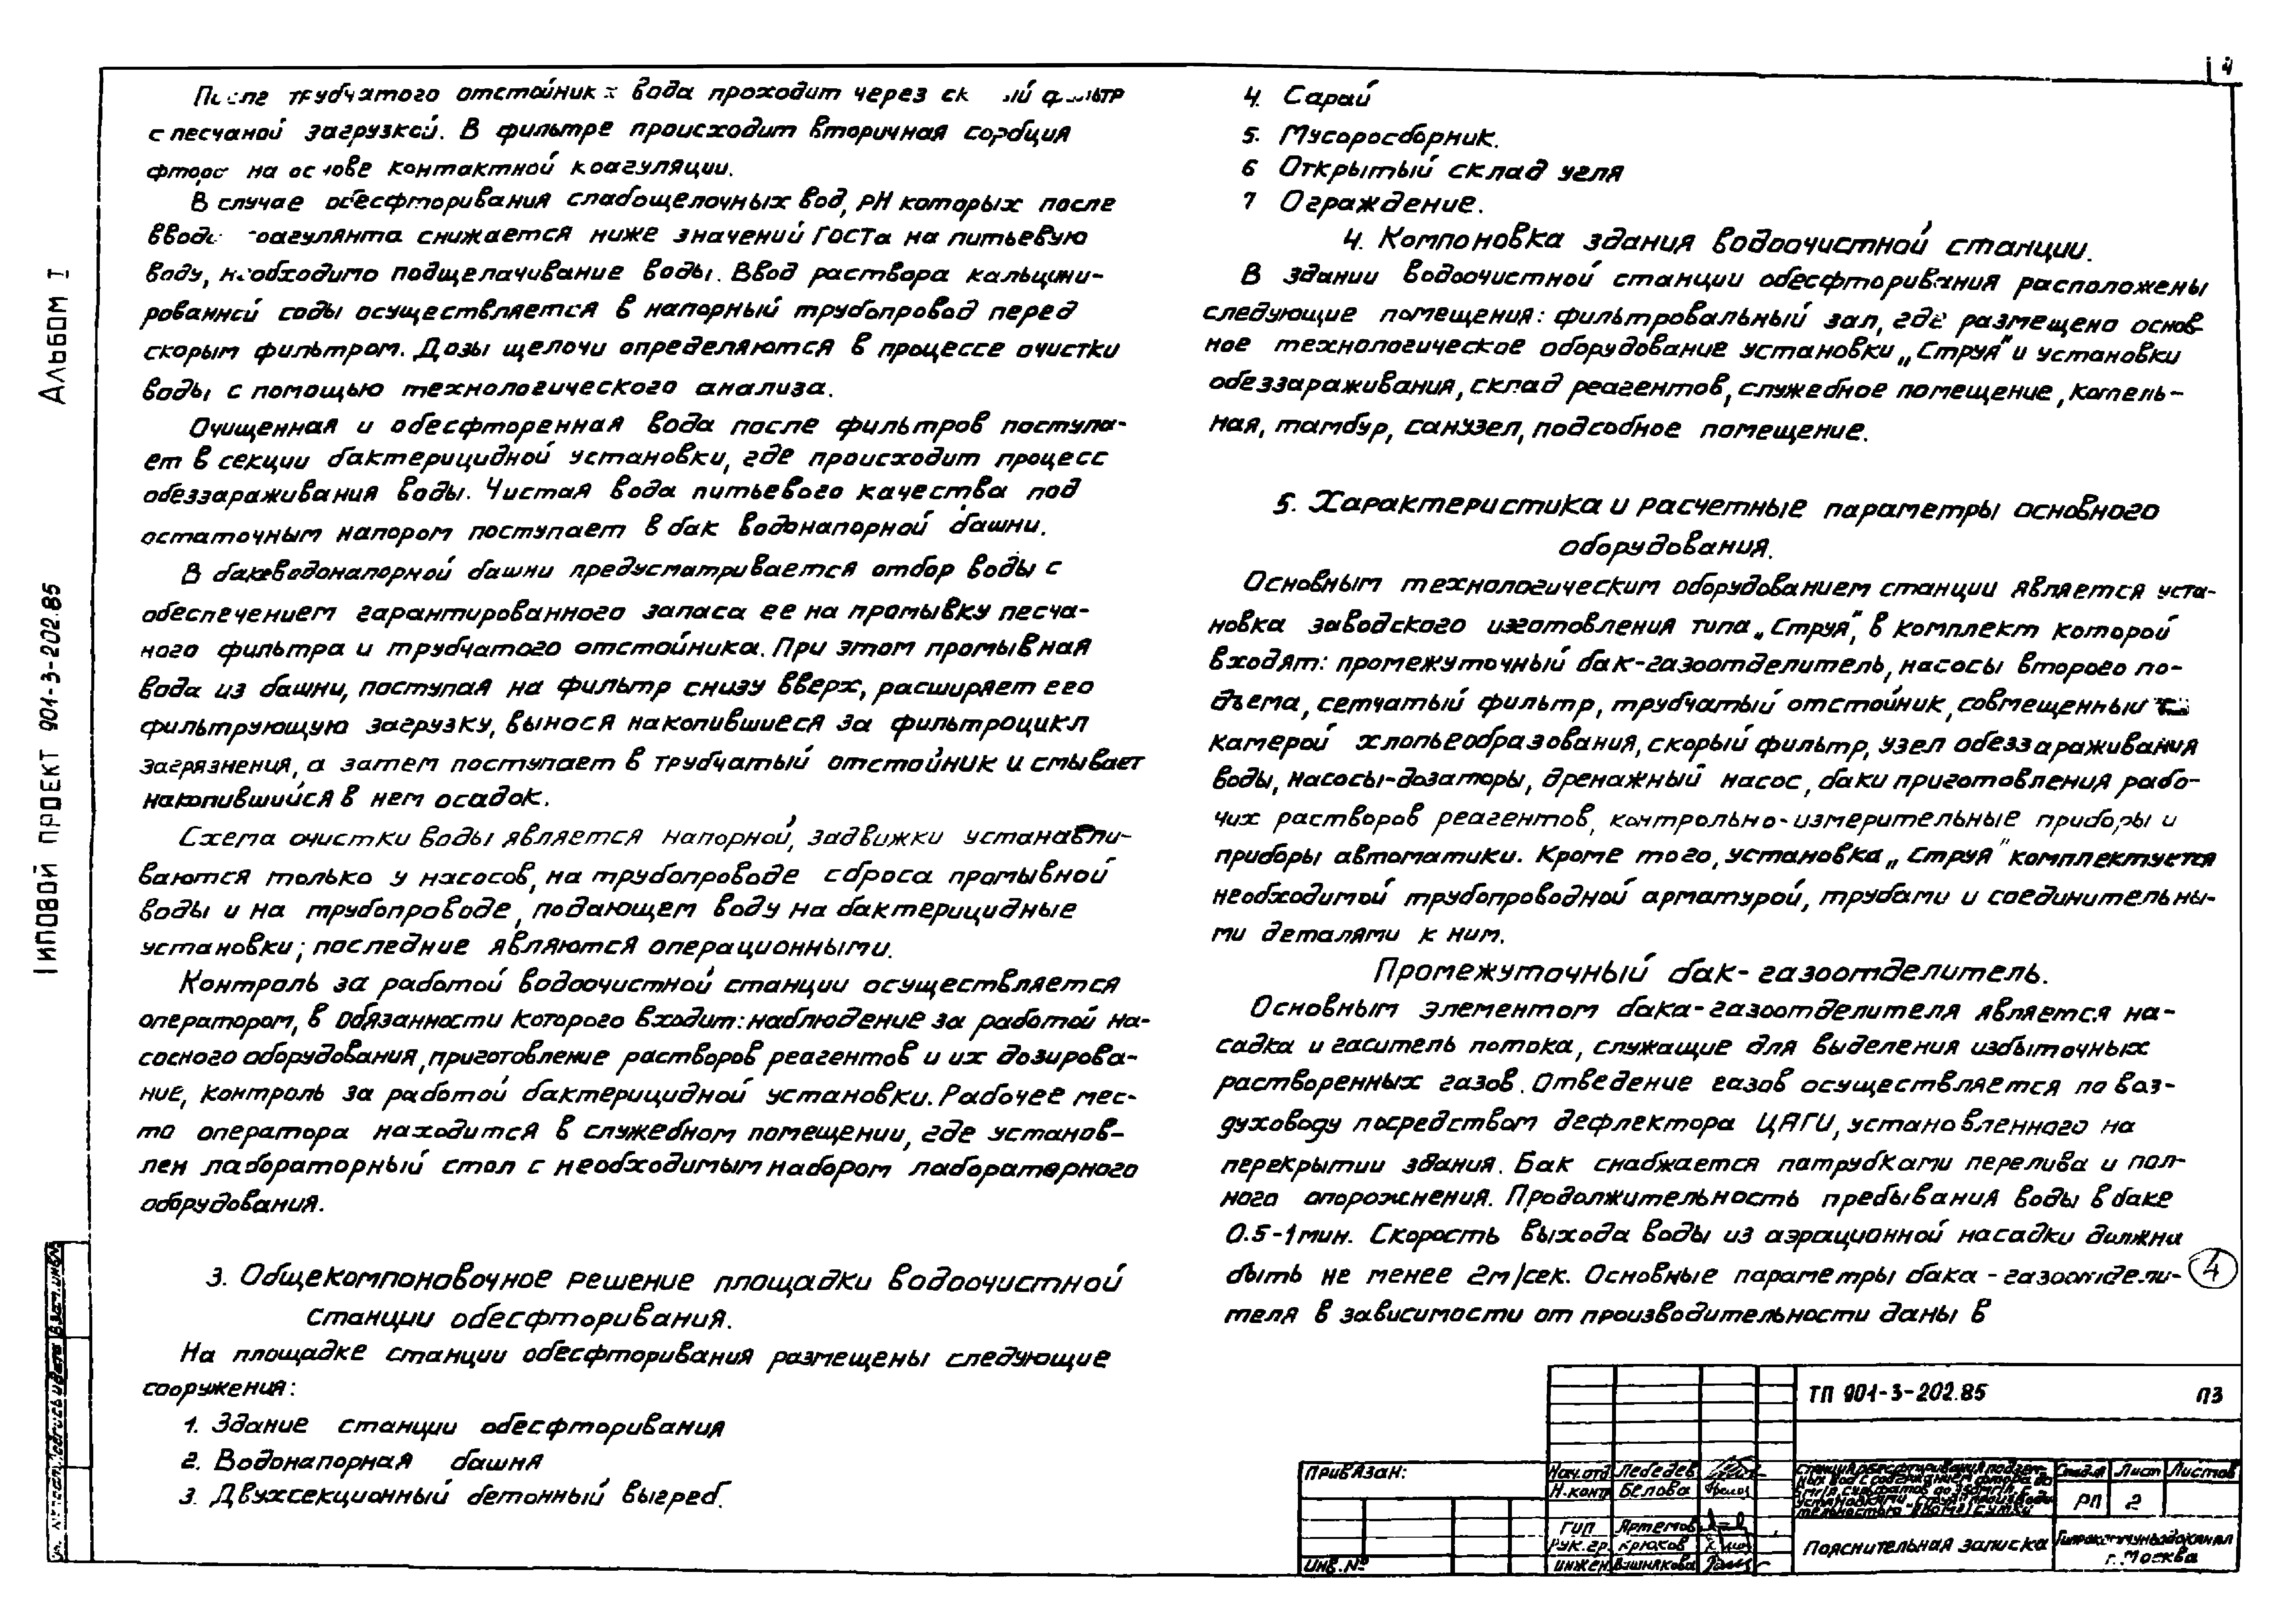 4
Альбом I
Типовой проект 901-3-202.85
После трубчатого отстойника вода проходит через фильтр
с песчаной загрузкой. В фильтре происходит вторичная сорбция
фтора на основе контактной коагуляции.
В случае обесфторивания слабощелочных вод, pH которых после
ввода коагулянта снижается ниже значений ГОСТа на питьевую
воду, необходимо подщелачивание воды. Ввод раствора кальцини-
рованной соды осуществляется в напорный трубопровод перед
скорым фильтром. Дозы щелочи определяются в процессе очистки
воды с помощью технологического анализа.
Очищенная и обесфторенная вода после фильтров поступа-
ет в секции бактерицидной установки, где происходит процесс
обеззараживания воды. Чистая вода питьевого качества под
остаточным напором поступает в бак водонапорной башни.
В баке водонапорной башни предусматривается отбор воды с
обеспечением гарантированного запаса ее на промывку песча-
ного фильтра и трубчатого отстойника. При этом промывная
вода из башни, поступая на фильтр снизу вверх, расширяет его
фильтрующую загрузку, вынося накопившиеся за фильтроцикл
загрязнения, а затем поступает в трубчатый отстойник и смывает
накопившийся в нем осадок.
Схема очистки воды является напорной, задвижки устанавли-
ваются только у насосов, на трубопроводе сброса промывной
воды и на трубопроводе, подающем воду на бактерицидные
установки; последние являются операционными.
Контроль за работой водоочистной станции осуществляется
оператором, в обязанности которого входит: наблюдение за работой на-
сосного оборудования, приготовление растворов реагентов и их дозирова-
ние, контроль за работой бактерицидной установки. Рабочее мес-
то оператора находится в служебном помещении, где установ-
лен лабораторный стол с необходимым набором лабораторного
оборудования.
3. Общекомпоновочное решение площадки водоочистной
станции обесфторивания.
На площадке станции обесфторивания размещены следующие
сооружения:
1. Здание станции обесфторивания
2. Водонапорная башня
3. Двухсекционный бетонный выгреб.
4. Сарай
5. Мусоросборник.
6 Открытый склад угля
7 Ограждение.
4. Компоновка здания водоочистной станции.
В здании водоочистной станции обесфторивания расположены
следующие помещения: фильтровальный зал, где размещено основ-
ное технологическое оборудование установки „Струя" и установки
обеззараживания, склад реагентов, служебное помещение, котель-
ная, тамбур, санузел, подсобное помещение.
5. Характеристика и расчетные параметры основного
оборудования.
Основным технологическим оборудованием станции является уста-
новка заводского изготовления типа „Струя", в комплект которой
входят: промежуточный бак-газоотделитель, насосы второго по-
дъема, сетчатый фильтр, трубчатый отстойник, совмещенный с
камерой хлопьеобразования, скорый фильтр, узел обеззараживания
воды, насосы-дозаторы, дренажный насос, баки приготовления рабо-
чих растворов реагентов, контрольно-измерительные приборы и
приборы автоматики. Кроме того, установка „Струя" комплектуется
необходимой трубопроводной арматурой, трубами и соединительны-
ми деталями к ним.
Промежуточный бак-газоотделитель.
Основным элементом бака-газоотделителя является на-
садка и гаситель потока, служащие для выделения избыточных
растворенных газов. Отведение газов осуществляется по воз-
духоводу посредством дефлектора ЦАГИ, установленного на
перекрытии здания. Бак снабжается патрубками перелива и пол-
ного опорожнения. Продолжительность пребывания воды в баке
0.5-1мин. Скорость выхода воды из аэрационной насадки должна
быть не менее 2м/сек. Основные параметры бака-газоотдели-
теля в зависимости от производительности даны в
4
ТП 901-3-202.85 ПЗ
Привязан:
Инв.№
Нач.отд Лебедев
Н.контр Белова
ГИП Артемов
Рук.гр. Крюков
Инжен Вишнякова
Станция обесфторивания подзем-
ных вод с содержанием фтора до
Стадия Лист Листов
РП 2
Пояснительная записка
Гипрокоммунводоканал
г. Москва